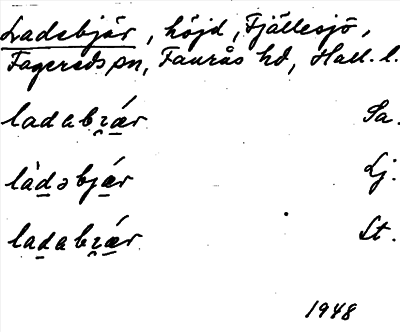 Ladebjär, höjd, Fjällesjö,
Fagereds sn, Faurås hd, Hall. l.
ladabɪ̯ǽr Sa.
làdəbjǽr Lj.
ladabɪ̯ǽr St.
1948